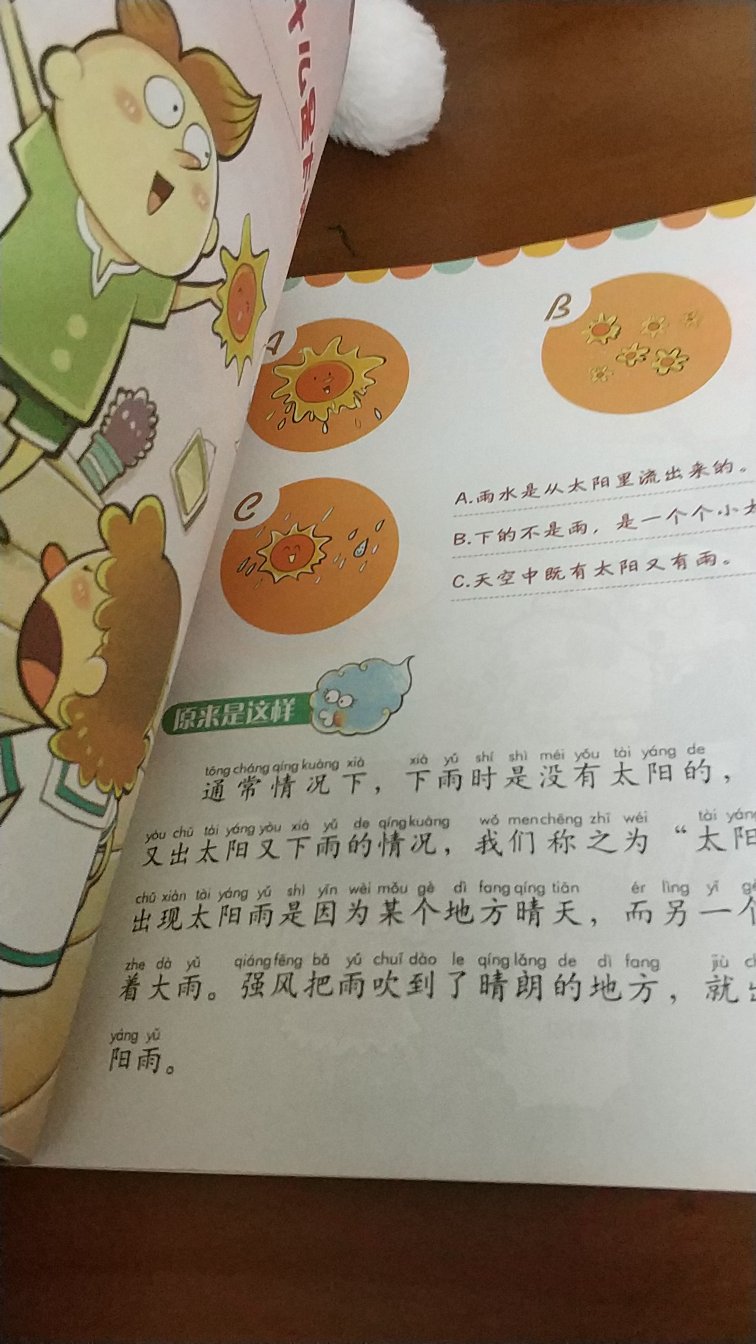 A
B
C
A.雨水是从太阳里流出来的。
B.下的不是雨，是一个个小太
C.天空中既有太阳又有雨。
原来是这样
tōng cháng qíng kuàng xià xià yǔ shí shì méi yǒu tài yáng de
通常情况下，下雨时是没有太阳的，
yòu chū tài yáng yòu xià yǔ de qíng kuàng wǒ men chēng zhī wéi tài yáng
又出太阳又下雨的情况，我们称之为“太阳
chū xiàn tài yáng yǔ shì yīn wèi mǒu gè dì fang qíng tiān ér lìng yī gè
出现太阳雨是因为某个地方晴天，而另一个
zhe dà yǔ qiáng fēng bǎ yǔ chuī dào le qíng lǎng de dì fang jiù
着大雨。强风把雨吹到了晴朗的地方，就
yáng yǔ
阳雨。